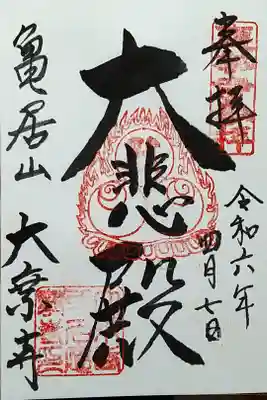 奉拝
令和六年
四月七日
大悲殿
亀居山
大願寺